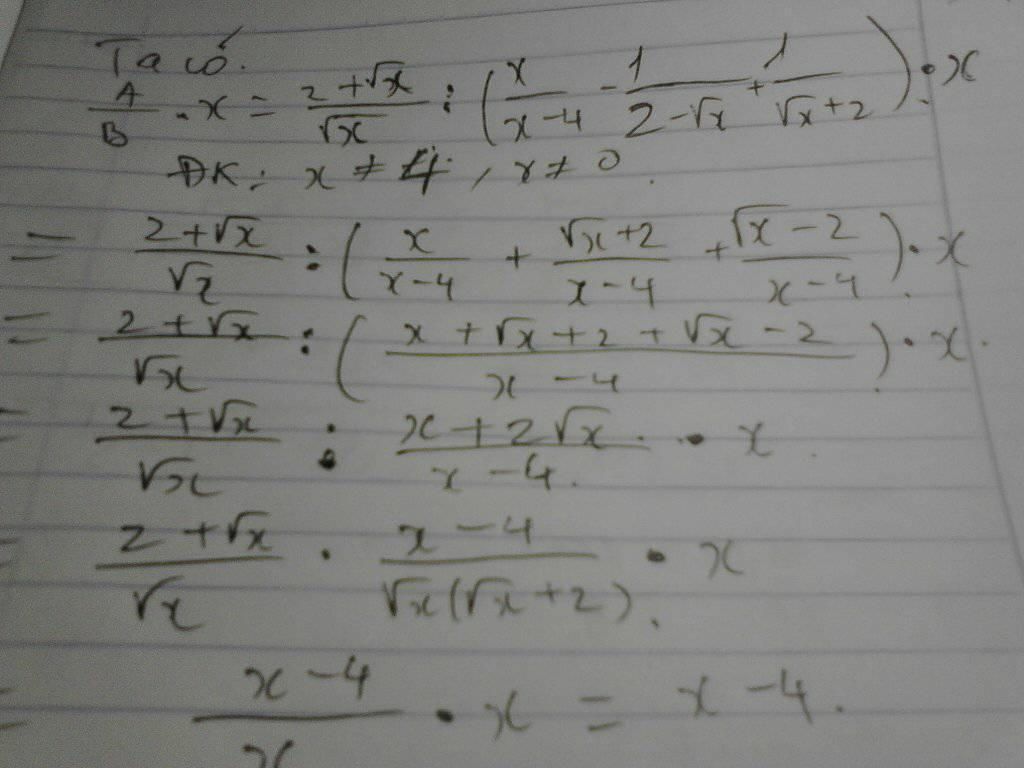 Ta có.
A/B . x = (2+√x)/√x : (x/(x-4) - 1/(2-√x) + 1/(√x+2)) . x
ĐK: x ≠ 4, x ≠ 0.
= (2+√x)/√x : (x/(x-4) + (√x+2)/(x-4) + (√x-2)/(x-4)) . x
= (2+√x)/√x : ((x+√x+2+√x-2)/(x-4)) . x.
= (2+√x)/√x : (x+2√x)/(x-4) . x.
= (2+√x)/√x . (x-4)/(√x(√x+2)) . x
= (x-4)/x . x = x-4.